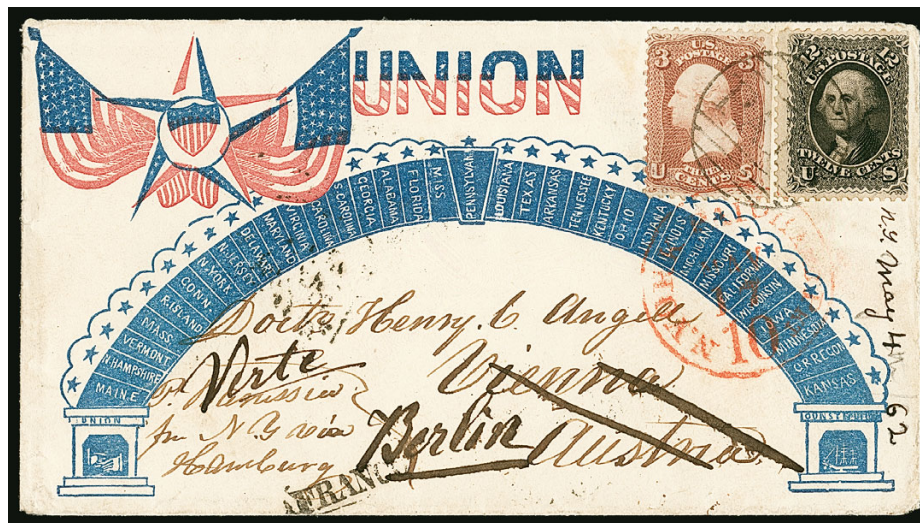 UNION
3 U.S. POSTAGE 3
U THREE CENTS S
12 12
U.S. POSTAGE
U TWELVE CENTS S
MAINE
N.HAMPSHIRE
VERMONT
MASS
R.ISLAND
CONN
N.YORK
N.JERSEY
DELAWARE
MARYLAND
VIRGINIA
N.CAROLINA
S.CAROLINA
GEORGIA
ALABAMA
FLORIDA
MISS
PENNSYLVAN
LOUISIANA
TEXAS
ARKANSAS
TENNESSEE
KENTUCKY
OHIO
INDIANA
ILLINOIS
MICHIGAN
MISSOURI
CALIFORNIA
WISCONSIN
IOWA
MINNESOTA
KANSAS
UNION
10
N.Y. May 4th 62
Doctr Henry. C Angell
Verte
Vienna
pr N Y via
Berlin
Austria
Hamburg
FRANCO